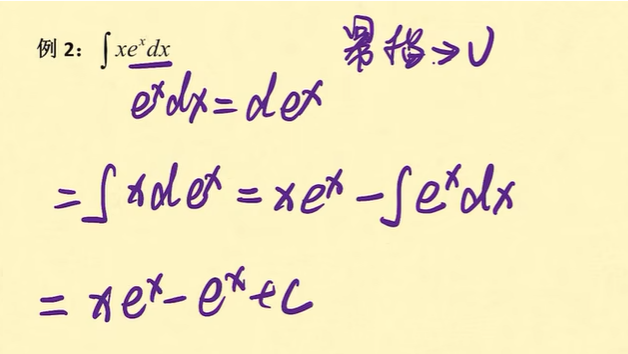 例 2：∫xeˣdx 幂指→U
eˣdx=deˣ
=∫xdeˣ=xeˣ-∫eˣdx
=xeˣ-eˣ+C